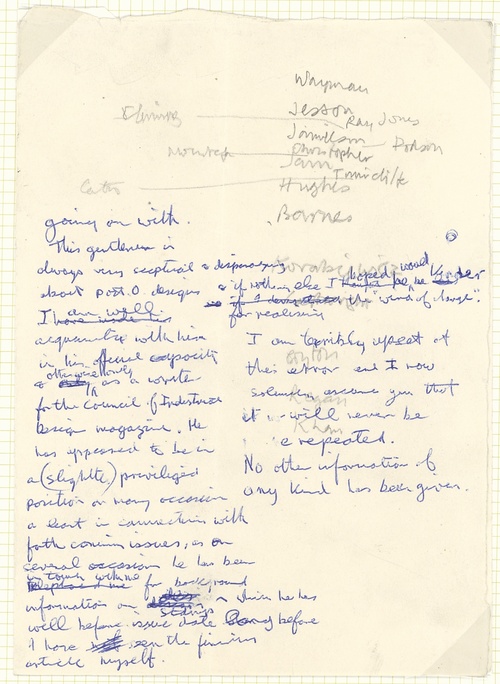 Wayman
Jesson
Ray Jones
Jamieson
Dobson
Christopher
Hughes
Barnes
going on with.
This gentleman is
always very sceptical & disparaging
about Post. O. designs
I am well
acquainted with him
in his official capacity
& as a writer
for the Council of Industrial
Design magazine. He
has appeared to be in
a (slightly) privileged
position on many occasion
a least in connection with
forth coming issues, as on
several occasion he has been
in touch with me for background
information on stamps which he has
well before issue date & long before
I have seen the finished
article myself.
& if nothing else I hoped he would
the "winds of change".
for realising
I am terribly upset at
this error and I now
solemnly assure you that
it will never be
repeated.
No other information of
any kind has been given.